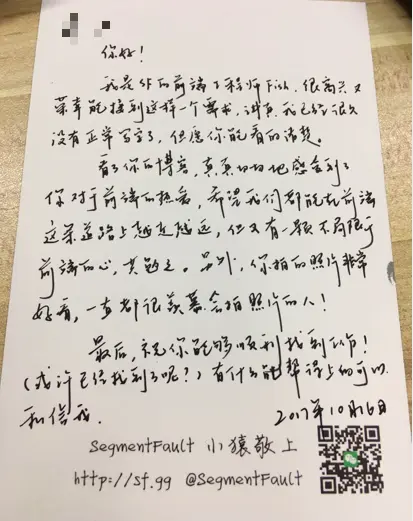 你好！
我是SF的前端工程师Fish，很高兴又
荣幸能接到这样一个要求，讲真，我已经很久
没有正常写字了，但愿你能看的清楚。
看了你的博客，真真切切地感受到了
你对于前端的热爱，希望我们都能在前端
这条道路上越走越远，但又有一颗不局限于
前端的心，共勉之。另外，你拍的照片非常
好看，一直都很羡慕会拍照片的人！
最后，祝你能够顺利找到工作！
（或许已经找到了呢？）有什么能帮得上的可以
私信我。
2017年10月16日
SegmentFault 小猿敬上
http://sf.gg @SegmentFault